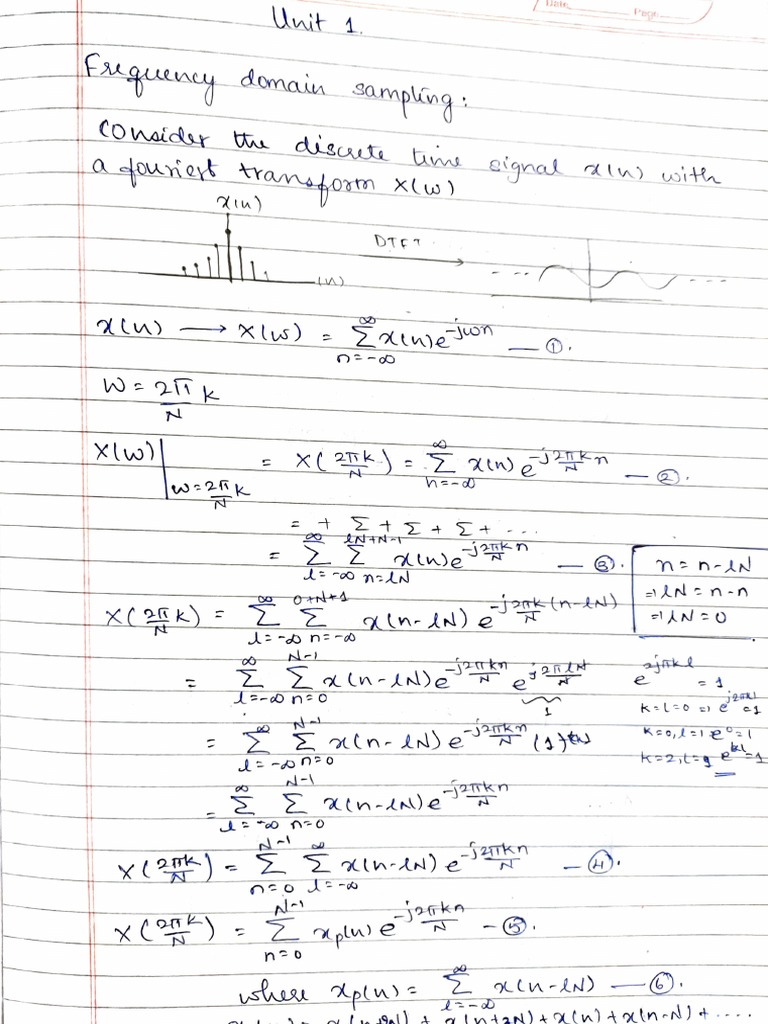 Date Page
Unit 1.
Frequency domain sampling:
Consider the discrete time signal x(n) with
a fouriest transform X(w)
x(n)
DTFT
(n)
x(n) ⟶ X(w) = ∑_{n=-∞}^{∞} x(n)e^{-jwn} — ①.
W = 2π/N k
X(w)|_{w=2π/N k} = X(2πk/N) = ∑_{n=-∞}^{∞} x(n) e^{-j2πk/N n} — ②.
= + ∑ + ∑ + ∑ + ...
= ∑_{l=-∞}^{∞} ∑_{n=lN}^{lN+N-1} x(n)e^{-j2πkn/N} — ③.
n = n-lN
⇒ lN = n-n
⇒ lN = 0
X(2π/N k) = ∑_{l=-∞}^{∞} ∑_{n=-∞}^{0+N+1} x(n-lN) e^{-j2πk/N (n-lN)}
= ∑_{l=-∞}^{∞} ∑_{n=0}^{N-1} x(n-lN)e^{-j2πkn/N} e^{j2πlN/N}
1
e^{2jπkl} = 1
k=l=0 ⇒ e^{j2πkl}=1
k=0, l=1 e^0=1
= ∑_{l=-∞}^{∞} ∑_{n=0}^{N-1} x(n-lN) e^{-j2πkn/N} (1)
= ∑_{l=-∞}^{∞} ∑_{n=0}^{N-1} x(n-lN)e^{-j2πkn/N}
X(2πk/N) = ∑_{n=0}^{N-1} ∑_{l=-∞}^{∞} x(n-lN) e^{-j2πkn/N} — ④.
X(2πk/N) = ∑_{n=0}^{N-1} x_p(n) e^{-j2πkn/N} — ⑤.
where x_p(n) = ∑_{l=-∞}^{∞} x(n-lN) — ⑥.
+ x(n+2N) + x(n) + x(n-N) + ....